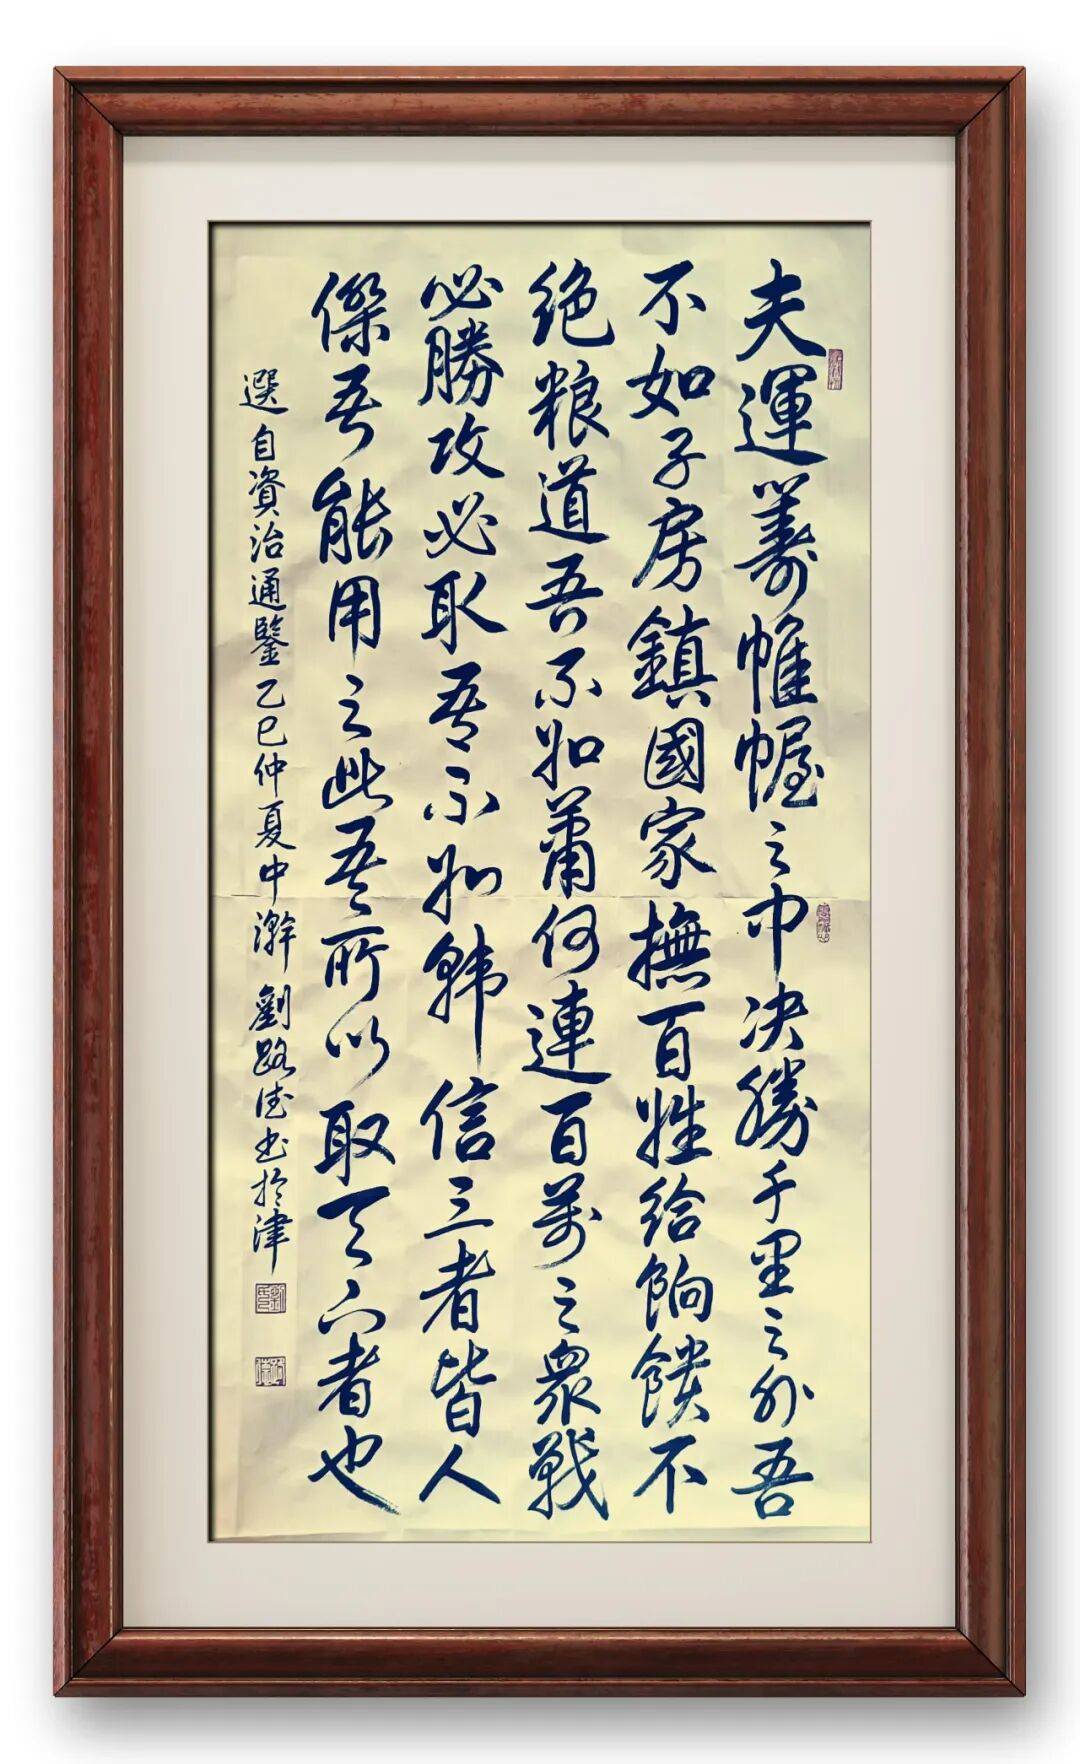 夫運籌帷幄之中决勝千里之外吾
不如子房鎮國家撫百姓給餉饋不
绝粮道吾不如蕭何連百萬之衆戰
必勝攻必取吾不如韩信三者皆人
傑吾能用之此吾所以取天下者也
選自資治通鑒乙巳仲夏中澣劉路法书於津